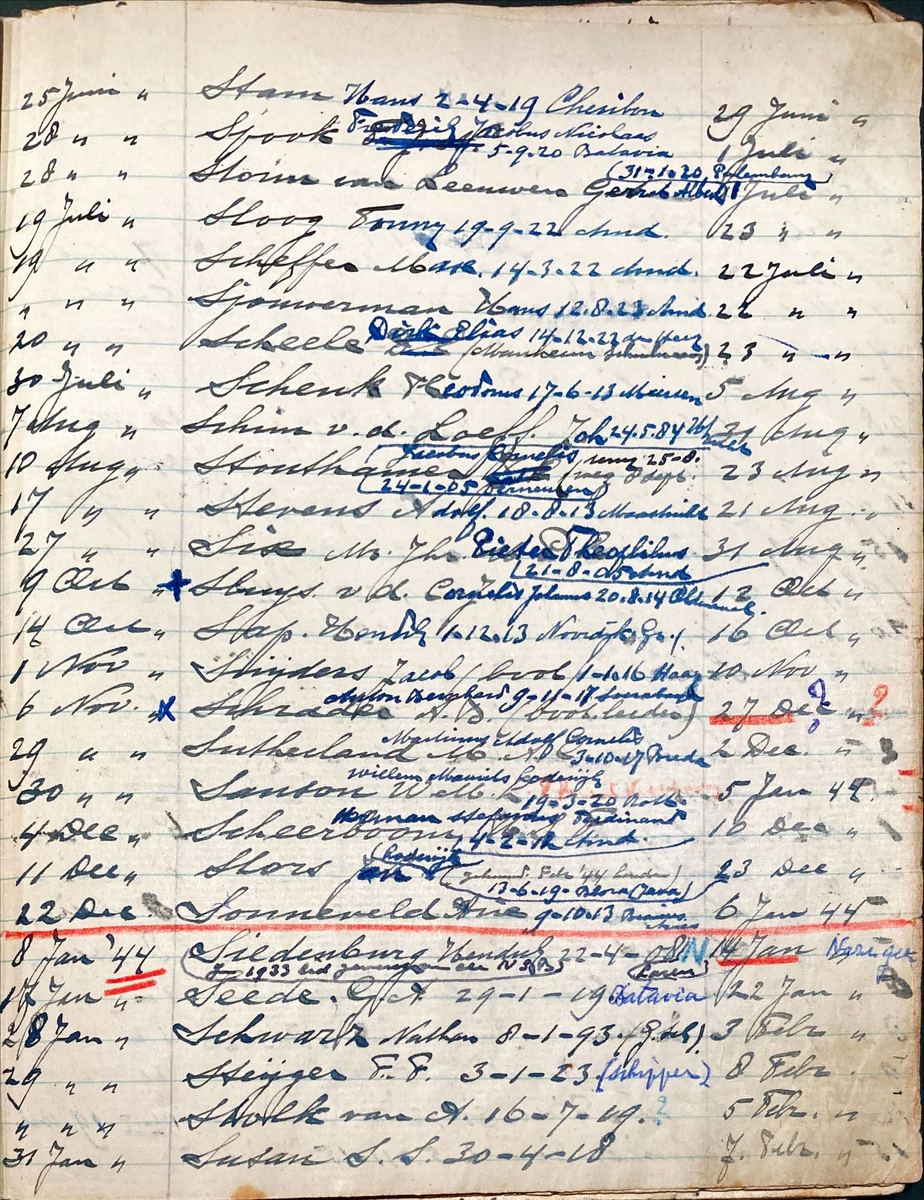 25 Juni " Stam Hans 2-4-19 Cheribon 29 Juni "
28 " " Spook Jacobus Nicolaas 5-9-20 Batavia 1 Juli "
28 " " Storm van Leeuwen Gerrit Albert (31-1-20, Palembang) 1 Juli "
19 Juli " Sloog Tonny 19-9-22 Amd. 23 " "
19 " " Scheffer Max. 14-3-22 Amd. 22 Juli "
" " " Sjouwerman Hans 12.8.23 Amd 22 " "
20 " " Scheele Dirk Elias 14-12-22 den Haag 23 " "
30 Juli " Schenk Theodorus 17-6-13 5 Aug "
7 Aug " Schim v. d. Loeff. Joh 24.5.84 31 Aug "
10 Aug " Houthamer Jacobus Cornelis terug 25-8. 23 Aug "
(24-1-05 Terneuzen) (weg 8 sept.
17 " " Stevens Adolf. 18-8-13 Maastricht 21 Aug "
27 " " Six Mr. Jhr Pieter Theophilus 31 Aug "
(21-8-05 Amd
9 Oct " Sluys v. d. Cornelis Johannes 20.8.14 12 Oct "
14 Oct " Slap. Hendrik 1-12-13 Noordijk (Gr.) 16 Oct "
1 Nov " Snijders Jacob (boot 1-1-16 Haag 10 Nov "
6 Nov. " x Schrader A. B. (bootleider) 27 Dec ? " ?
Anton Berghard 9-11-17 Soerabaja
29 " " Sutherland M. A. C. 3-10-17 Breda 2 Dec. "
Martinus Adolf Cornelis
30 " " Sanson W. M. L. 19-3-20 Rott. 5 Jan 44
Willem Maurits Lodewijk
4 Dec " Scheerboom 14-2-12 Amd. 10 Dec "
Herman Ferdinand
11 Dec " Stors (Lodewijk 23 Dec "
13-6-19- Blora (Java)
22 Dec Sonneveld Arie 9-10-13 6 Jan 44
8 Jan '44 Siedenburg Hendrik 22-4-08 N 14 Jan
(in 1933 lid geweest van der N.S.B.) (Laren)
17 Jan " Seede. G. A. 29-1-19 Batavia 22 Jan "
28 Jan " Schwarz Nathan 8-1-93. 3 Febr "
29 " " Steijger F. F. 3-1-23 (schipper) 8 Febr
" " " Stolk van A. 16-7-19. ? 5 Febr. "
31 Jan " Susan S. S. 30-4-18 7. Febr. "